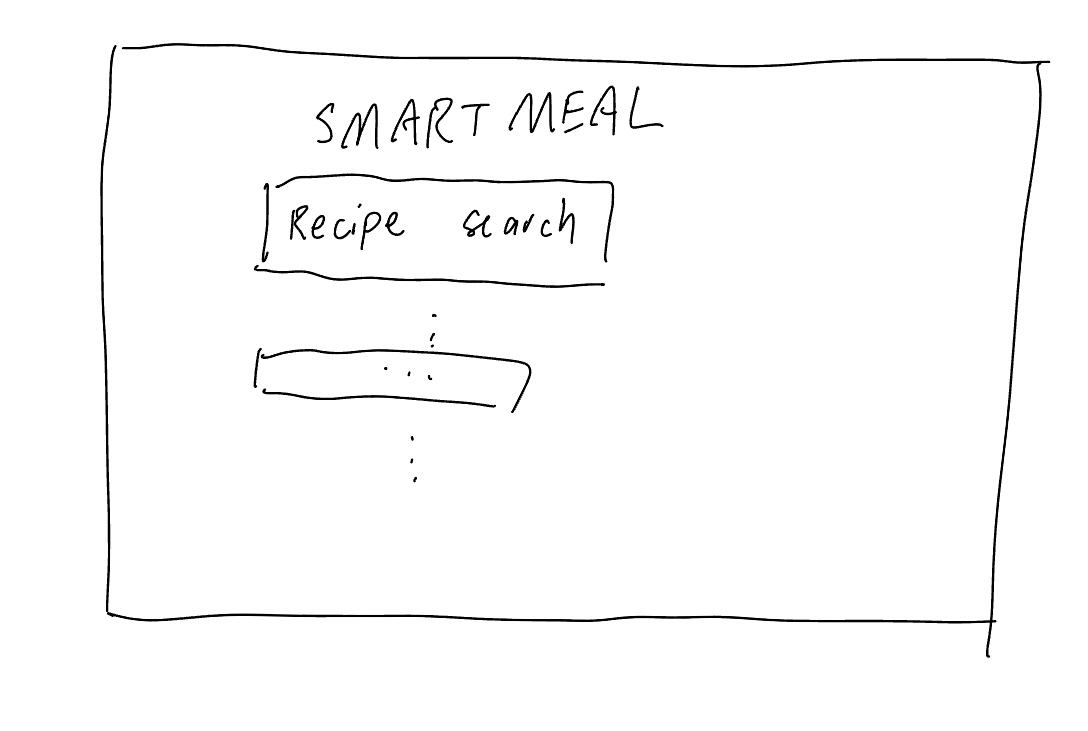 SMART MEAL
Recipe search
...